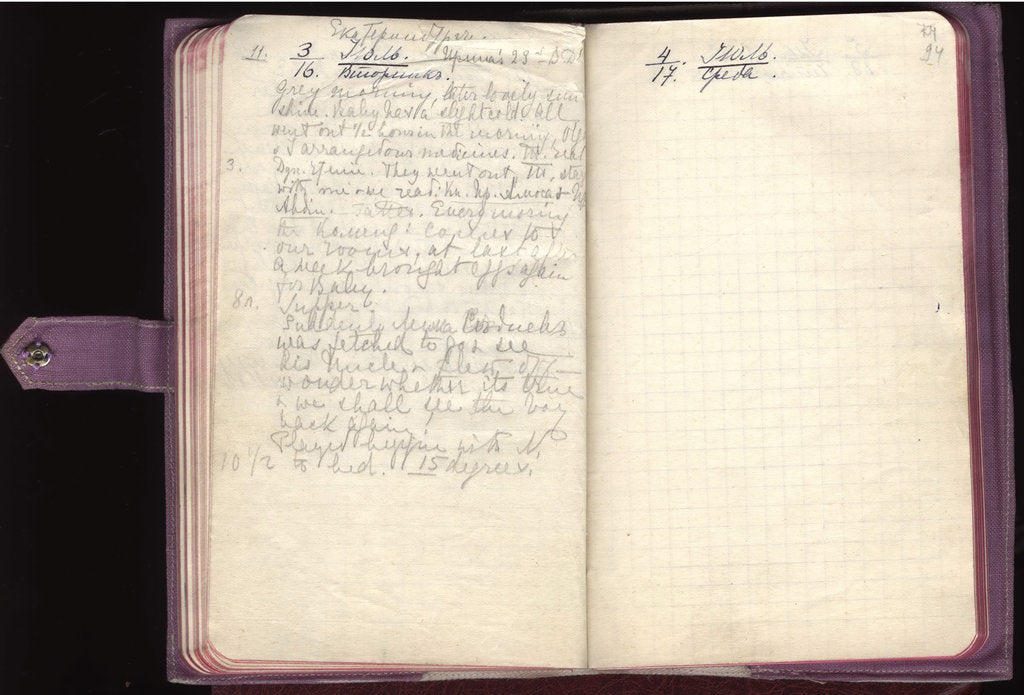 Екатеринбург.
11. 3/16. Июль. Irina's 23rd B.D.
Вторникъ.
Grey morning, later lovely sun
shine. Baby has a slight cold. All
went out ½ hour in the morning, Olga
& I arranged our medicines. T. read
3. Spir. readings. They went out, T. stayed
with me & we read: Bk. pr. Amos &
pr. Audios. Tatted. Every morning
the Komend: comes to
our rooms, at last after
a week brought eggs again
for Baby.
8h. Supper.
Suddenly Lenka Sednev
was fetched to go & see
his Uncle & flew off
wonder whether its true
& we shall see the boy
back again!
Played bezique with N.
10½ to bed. 15 degrees.
4/17. Июль.
Среда.
94